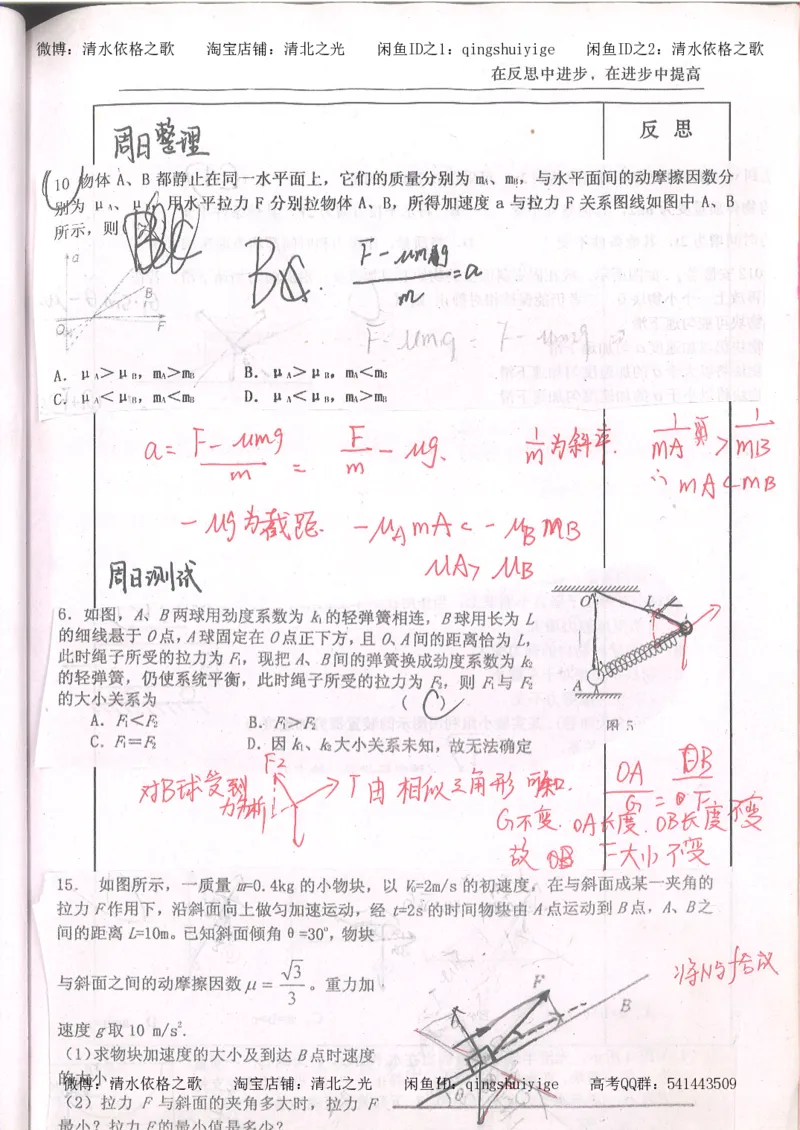 微博：清水依格之歌 淘宝店铺：清北之光 闲鱼ID之1：qingshuiyige 闲鱼ID之2：清水依格之歌
在反思中进步，在进步中提高
周日整理
反 思
10 物体 A、B 都静止在同一水平面上，它们的质量分别为 mA、mB，与水平面间的动摩擦因数分
别为 μA、μB，用水平拉力 F 分别拉物体 A、B，所得加速度 a 与拉力 F 关系图线如图中 A、B
所示，则
B
F-μmg
=a
m
a
B
O
F
F-μmg = F-μmg
A．μA＞μB，mA＞mB B．μA＞μB，mA＜mB
C．μA＜μB，mA＜mB D．μA＜μB，mA＞mB
a= F-μmg/m = F/m - μg、 1/m为斜率. 1/mA > 1/mB
∴ mA<mB
-μg为截距. -μAmA< -μBmB
μA> μB
周日测试
6．如图，A、B 两球用劲度系数为 k₁的轻弹簧相连，B 球用长为 L
的细线悬于 O 点，A 球固定在 O 点正下方，且 O、A 间的距离恰为 L，
此时绳子所受的拉力为 F₁，现把 A、B 间的弹簧换成劲度系数为 k₂
的轻弹簧，仍使系统平衡，此时绳子所受的拉力为 F₂，则 F₁与 F₂
的大小关系为 （ C ）
A．F₁＜F₂ B．F₁＞F₂
C．F₁＝F₂ D．因 k₁、k₂大小关系未知，故无法确定
O
L
A
图 5
对B球受到力分析
F2
T
由相似三角形可知.
OA/G = OB/F
G不变. OA长度. OB长度不变
故 T大小不变
15． 如图所示，一质量 m=0.4kg 的小物块，以 V₀=2m/s 的初速度，在与斜面成某一夹角的
拉力 F 作用下，沿斜面向上做匀加速运动，经 t=2s 的时间物块由 A 点运动到 B 点，A、B 之
间的距离 L=10m。已知斜面倾角 θ=30°，物块
与斜面之间的动摩擦因数 μ = √3/3 。重力加
速度 g 取 10 m/s².
（1）求物块加速度的大小及到达 B 点时速度
的大小
（2）拉力 F 与斜面的夹角多大时，拉力 F
最小？拉力 F 的最小值是多少？
将N与f合成
F
B
θ
微博：清水依格之歌 淘宝店铺：清北之光 闲鱼ID：qingshuiyige 高考QQ群：541443509